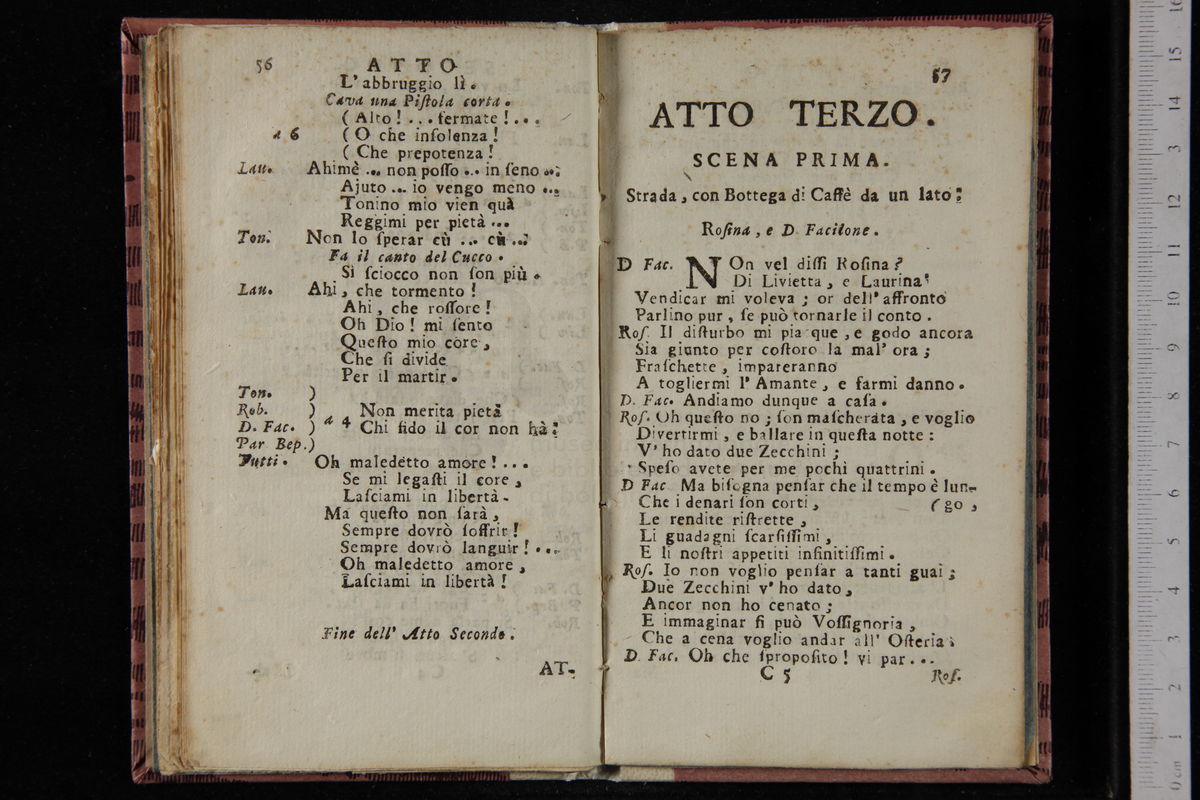 56 ATTO
L' abbruggio lì.
Cava una Piſtola corta.
( Alto! ... fermate! ...
a 6 ( O che inſolenza!
( Che prepotenza!
Lau. Ahimè ... non poſſo ... in ſeno ...
Ajuto ... io vengo meno ...
Tonino mio vien quà
Reggimi per pietà ...
Ton. Non lo ſperar cù ... cù ...
Fa il canto del Cucco.
Sì ſciocco non ſon più.
Lau. Ahi, che tormento!
Ahi, che roſſore!
Oh Dio! mi ſento
Queſto mio core,
Che ſi divide
Per il martir.
Ton. )
Rob. ) a 4 Non merita pietà
D. Fac. ) Chi fido il cor non hà:
Par Bep.)
Tutti. Oh maledetto amore! ...
Se mi legaſti il core,
Laſciami in libertà-
Ma queſto non ſarà,
Sempre dovrò ſoffrir!
Sempre dovrò languir! ...
Oh maledetto amore,
Laſciami in libertà!
Fine dell' Atto Secondo.
AT-
57
ATTO TERZO.
SCENA PRIMA.
Strada, con Bottega di Caffè da un lato:
Roſina, e D. Facilone.
D Fac. NOn vel diſſi Roſina?
Di Livietta, e Laurina
Vendicar mi voleva; or dell' affronto
Parlino pur, ſe può tornarle il conto.
Roſ. Il diſturbo mi piacque, e godo ancora
Sia giunto per coſtoro la mal' ora;
Fraſchette, impareranno
A togliermi l' Amante, e farmi danno.
D. Fac. Andiamo dunque a caſa.
Roſ. Oh queſto no; ſon maſcherata, e voglio
Divertirmi, e ballare in queſta notte:
V' ho dato due Zecchini;
Speſo avete per me pochi quattrini.
D Fac. Ma biſogna penſar che il tempo è lun-
Che i denari ſon corti, (go,
Le rendite riſtrette,
Li guadagni ſcarſiſſimi,
E li noſtri appetiti infinitiſſimi.
Roſ. Io non voglio penſar a tanti guai;
Duè Zecchini v' ho dato,
Ancor non ho cenato;
E immaginar ſi può Voſſignoria,
Che a cena voglio andar all' Oſteria.
D. Fac. Oh che ſpropoſito! vi par...
C 5 Roſ.
0 cm 1 2 3 4 5 6 7 8 9 10 11 12 13 14 15 16